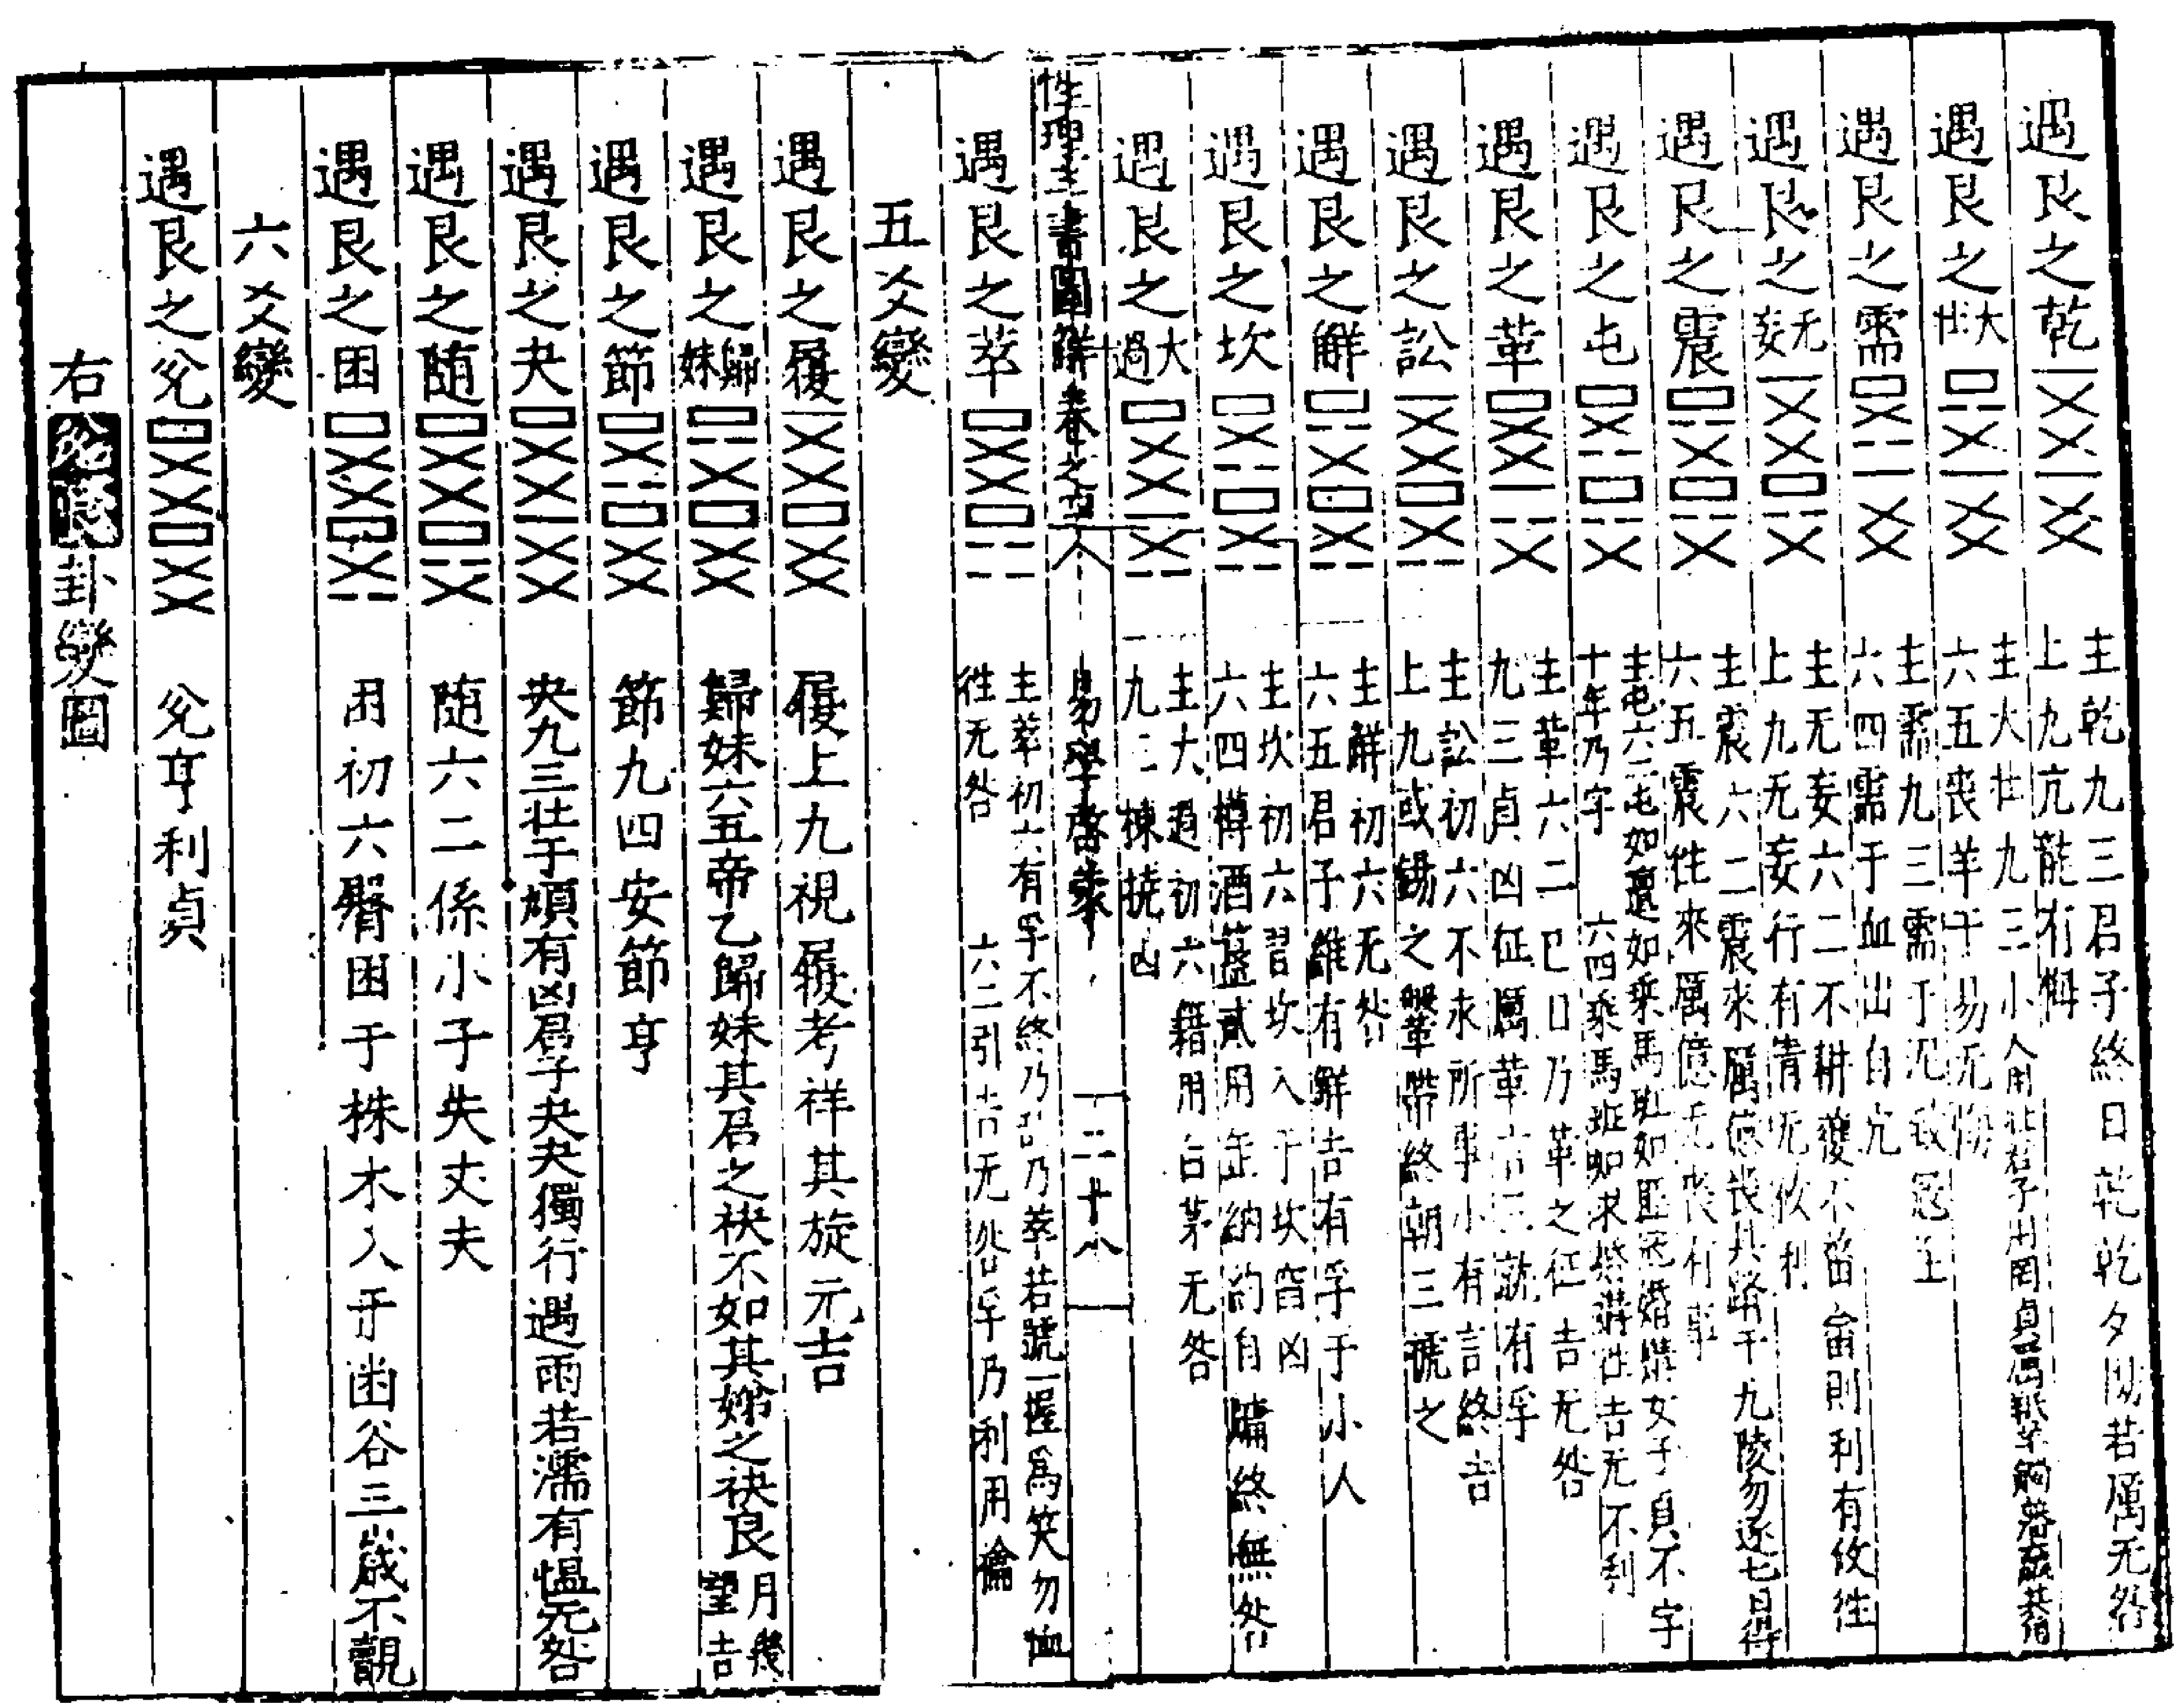 遇艮之乾 主乾九三君子終日乾乾夕惕若厲无咎
上九亢龍有悔
遇艮之大壯 主大壯九三小人用壯君子用罔貞厲羝羊觸藩羸其角
六五喪羊于易无悔
遇艮之需 主需九三需于泥致寇至
六四需于血出自穴
遇艮之无妄 主无妄六二不耕穫不菑畬則利有攸往
上九无妄行有眚无攸利
遇艮之震 主震六二震來厲億喪貝躋于九陵勿逐七日得
六五震往來厲億无喪有事
遇艮之屯 主屯六二屯如邅如乘馬班如匪寇婚媾女子貞不字
十年乃字 六四乘馬班如求婚媾往吉无不利
遇艮之革 主革六二巳日乃革之征吉无咎
九三貞凶征厲革言三就有孚
遇艮之訟 主訟初六不永所事小有言終吉
上九或錫之鞶帶終朝三褫之
遇艮之解 主解初六无咎
六五君子維有解吉有孚于小人
遇艮之坎 主坎初六習坎入于坎窞凶
六四樽酒簋貳用缶納約自牖終無咎
遇艮之大過 主大過初六藉用白茅无咎
九三棟撓凶
性理羣書圖解卷之 八 易學啓蒙 二十八
遇艮之萃 主萃初六有孚不終乃亂乃萃若號一握爲笑勿恤
往无咎 六二引吉无咎孚乃利用禴
五爻變
遇艮之履 履上九視履考祥其旋元吉
遇艮之歸妹 歸妹六五帝乙歸妹其君之袂不如其娣之袂良月幾望吉
遇艮之節 節九四安節亨
遇艮之夬 夬九三壯于頄有凶君子夬夬獨行遇雨若濡有慍无咎
遇艮之随 随六二係小子失丈夫
遇艮之困 困初六臀困于株木入于幽谷三歲不覿
六爻變
遇艮之兊 兊亨利貞
右兊艮卦變圖